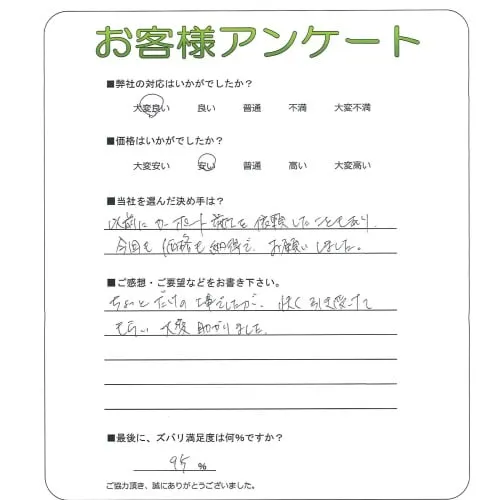 お客様アンケート
■弊社の対応はいかがでしたか?
大変良い 良い 普通 不満 大変不満
■価格はいかがでしたか?
大変安い 安い 普通 高い 大変高い
■当社を選んだ決め手は?
以前にカーポート を依頼したこともあり、
今回も価格も納得で、お願いしました。
■ご感想・ご要望などをお書き下さい。
ちょっとだけの工事でしたが、快く引き受けて
もらい大変助かりました。
■最後に、ズバリ満足度は何%ですか?
95 %
ご協力頂き、誠にありがとうございました。